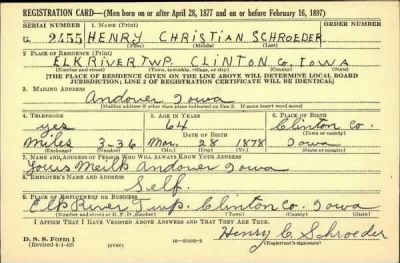 REGISTRATION CARD—(Men born on or after April 28, 1877 and on or before February 16, 1897)
SERIAL NUMBER 1. NAME (Print)
U 2455 HENRY CHRISTIAN SCHROEDER
(First) (Middle) (Last)
2. PLACE OF RESIDENCE (Print)
ELK RIVER TWP. CLINTON CO. IOWA
(Number and street) (Town, township, village, or city) (County) (State)
[THE PLACE OF RESIDENCE GIVEN ON THE LINE ABOVE WILL DETERMINE LOCAL BOARD
JURISDICTION; LINE 2 OF REGISTRATION CERTIFICATE WILL BE IDENTICAL]
3. MAILING ADDRESS
Andover Iowa
[Mailing address if other than place indicated on line 2. If same insert word same]
4. TELEPHONE 5. AGE IN YEARS 6. PLACE OF BIRTH
yes 64 Clinton Co.
DATE OF BIRTH (Town or county)
Miles 3-36 Mar. 28 1878 Iowa
(Exchange) (Number) (Mo.) (Day) (Yr.) (State or country)
7. NAME AND ADDRESS OF PERSON WHO WILL ALWAYS KNOW YOUR ADDRESS
Andover Iowa
8. EMPLOYER'S NAME AND ADDRESS
Self.
9. PLACE OF EMPLOYMENT OR BUSINESS
Elk River Twp. Clinton Co. Iowa
(Number and street or R. F. D. number) (Town) (County) (State)
I AFFIRM THAT I HAVE VERIFIED ABOVE ANSWERS AND THAT THEY ARE TRUE.
Henry C. Schroeder
D. S. S. Form 1
(Revised 4-1-42) (over) (Registrant's signature)